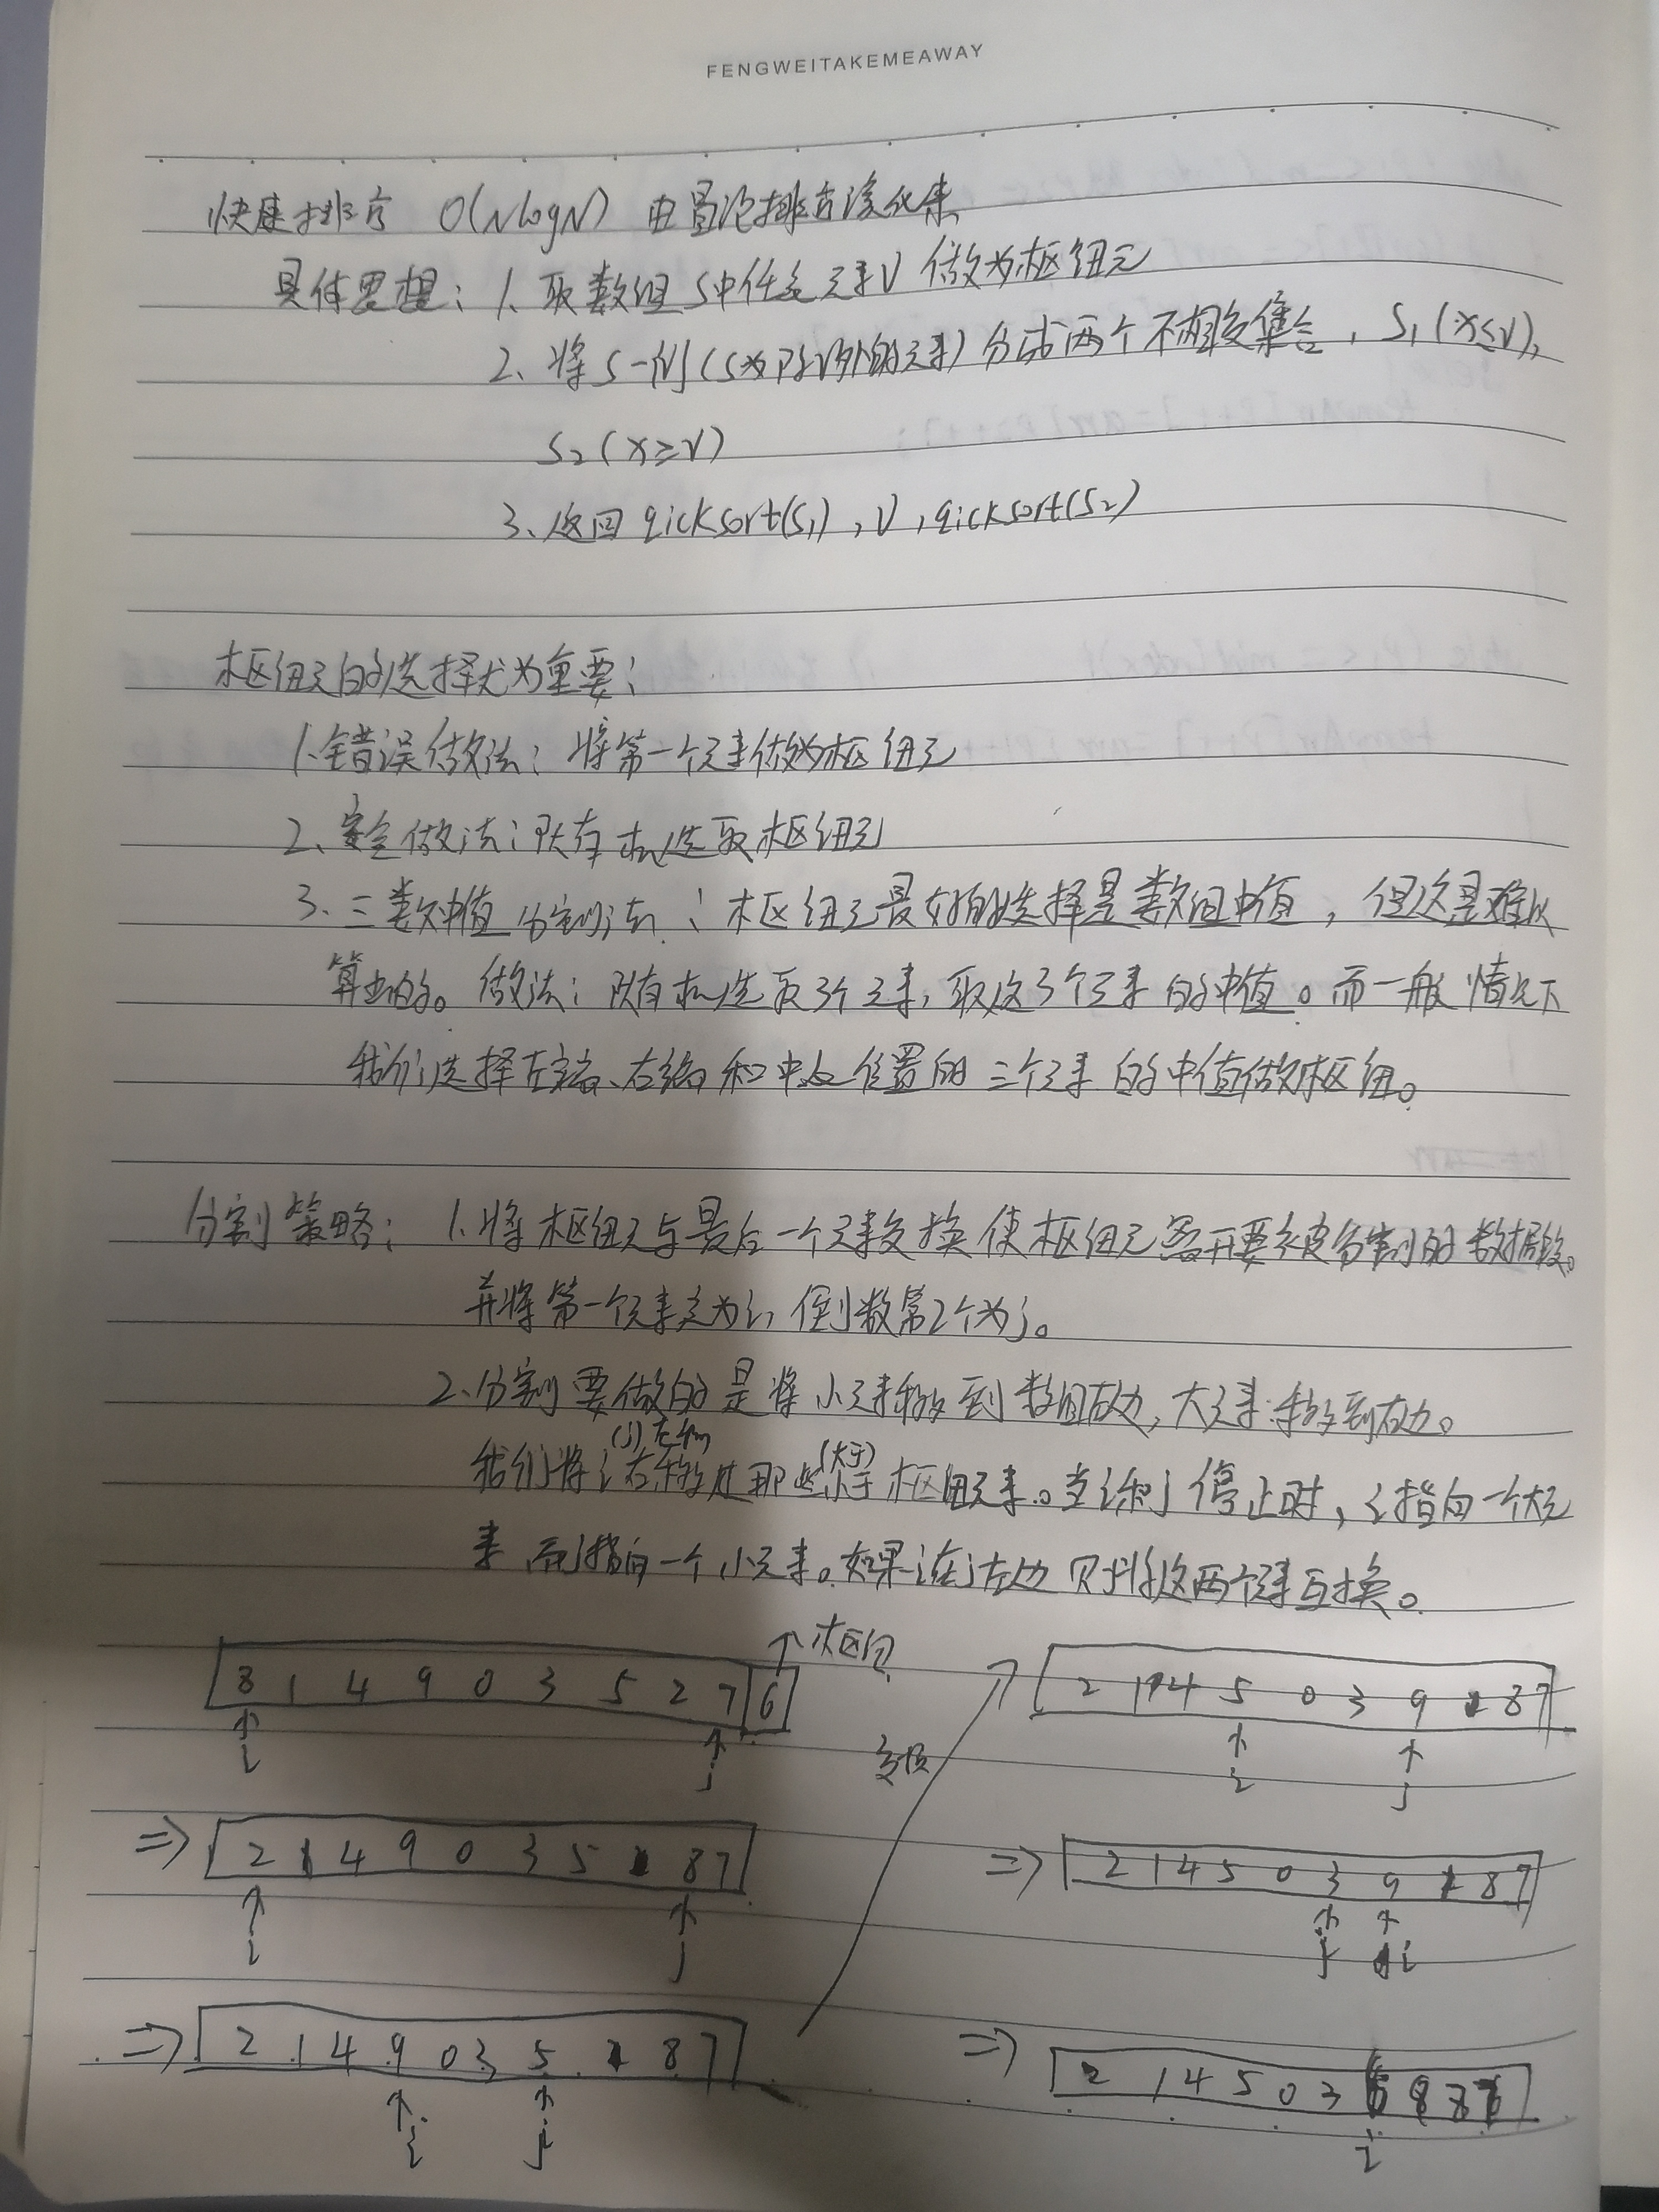 FENGWEITAKEMEAWAY
快速排序 O(NlogN) 由冒泡排序演化来
具体思想:1、取数组S中任意元素V做为枢纽元
2、将S-{V}(S为除V外的元素)分成两个不相交集合,S₁(x≤V),
S₂(x≥V)
3、返回 qicksort(S₁),V,qicksort(S₂)
枢纽元的选择尤为重要:
1.错误做法:将第一个元素做为枢纽元
2、安全做法:随机选取枢纽元
3、三数中值分割法:枢纽元最好的选择是数组中值,但这是难以
算出的。做法:随机选取3个元素,取这3个元素的中值。而一般情况下
我们选择左端、右端和中心位置的三个元素的中值做枢纽。
分割策略:1.将枢纽元与最后一个元素交换使枢纽元离开要被分割的数据段。
并将第一个元素定为i,倒数第2个为j。
2、分割要做的是将小元素移到数组左边,大元素移到右边。
(j) 左移 (大于)
我们将i右移过那些小于枢纽元素。当i和j停止时,i指向一个大元
素而j指向一个小元素。如果i在j左边则将这两个元素互换。
↑枢纽
8 1 4 9 0 3 5 2 7 6
i j
交换
2 1 4 5 0 3 9 8 7
i j
⇒ 2 1 4 9 0 3 5 8 7
i j
⇒ 2 1 4 5 0 3 9 8 7
j i
⇒ 2 1 4 9 0 3 5 8 7
i j
⇒ 2 1 4 5 0 3 6 8 7
i